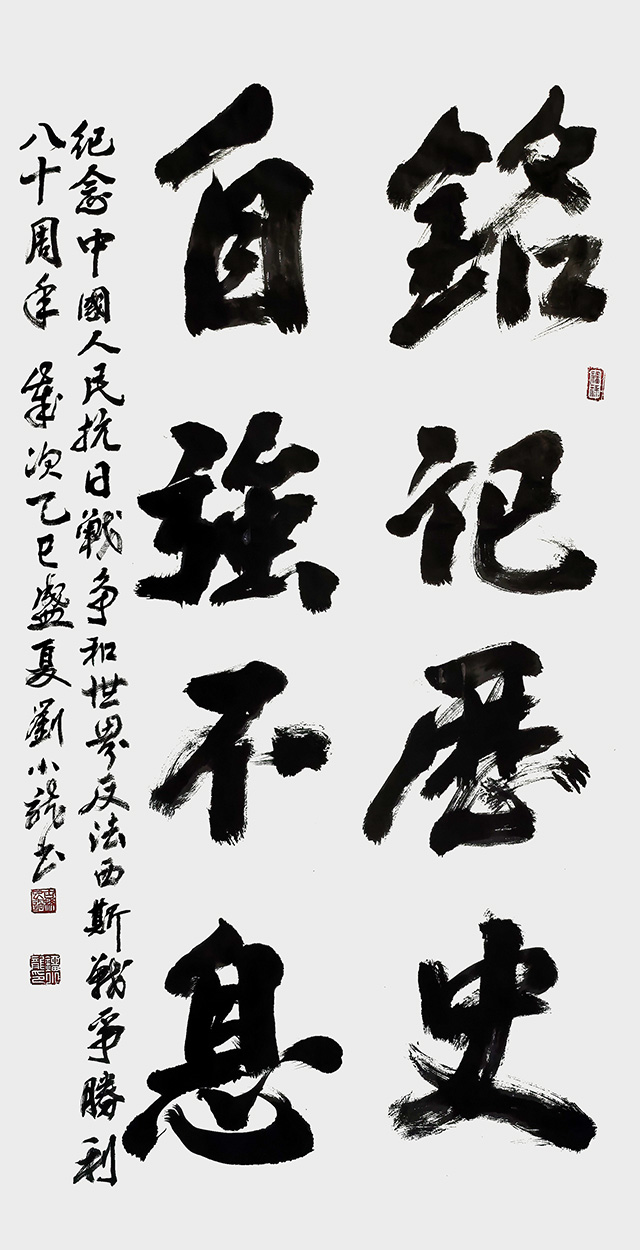 銘記歷史
自強不息
紀念中國人民抗日戰争和世界反法西斯戰爭勝利
八十周年 歲次乙巳盛夏劉小龍书